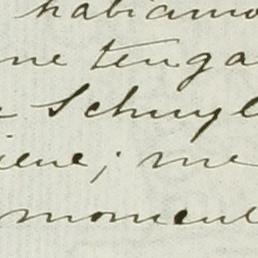 habiamo
me tenga
Schuyl
iene; me
moment